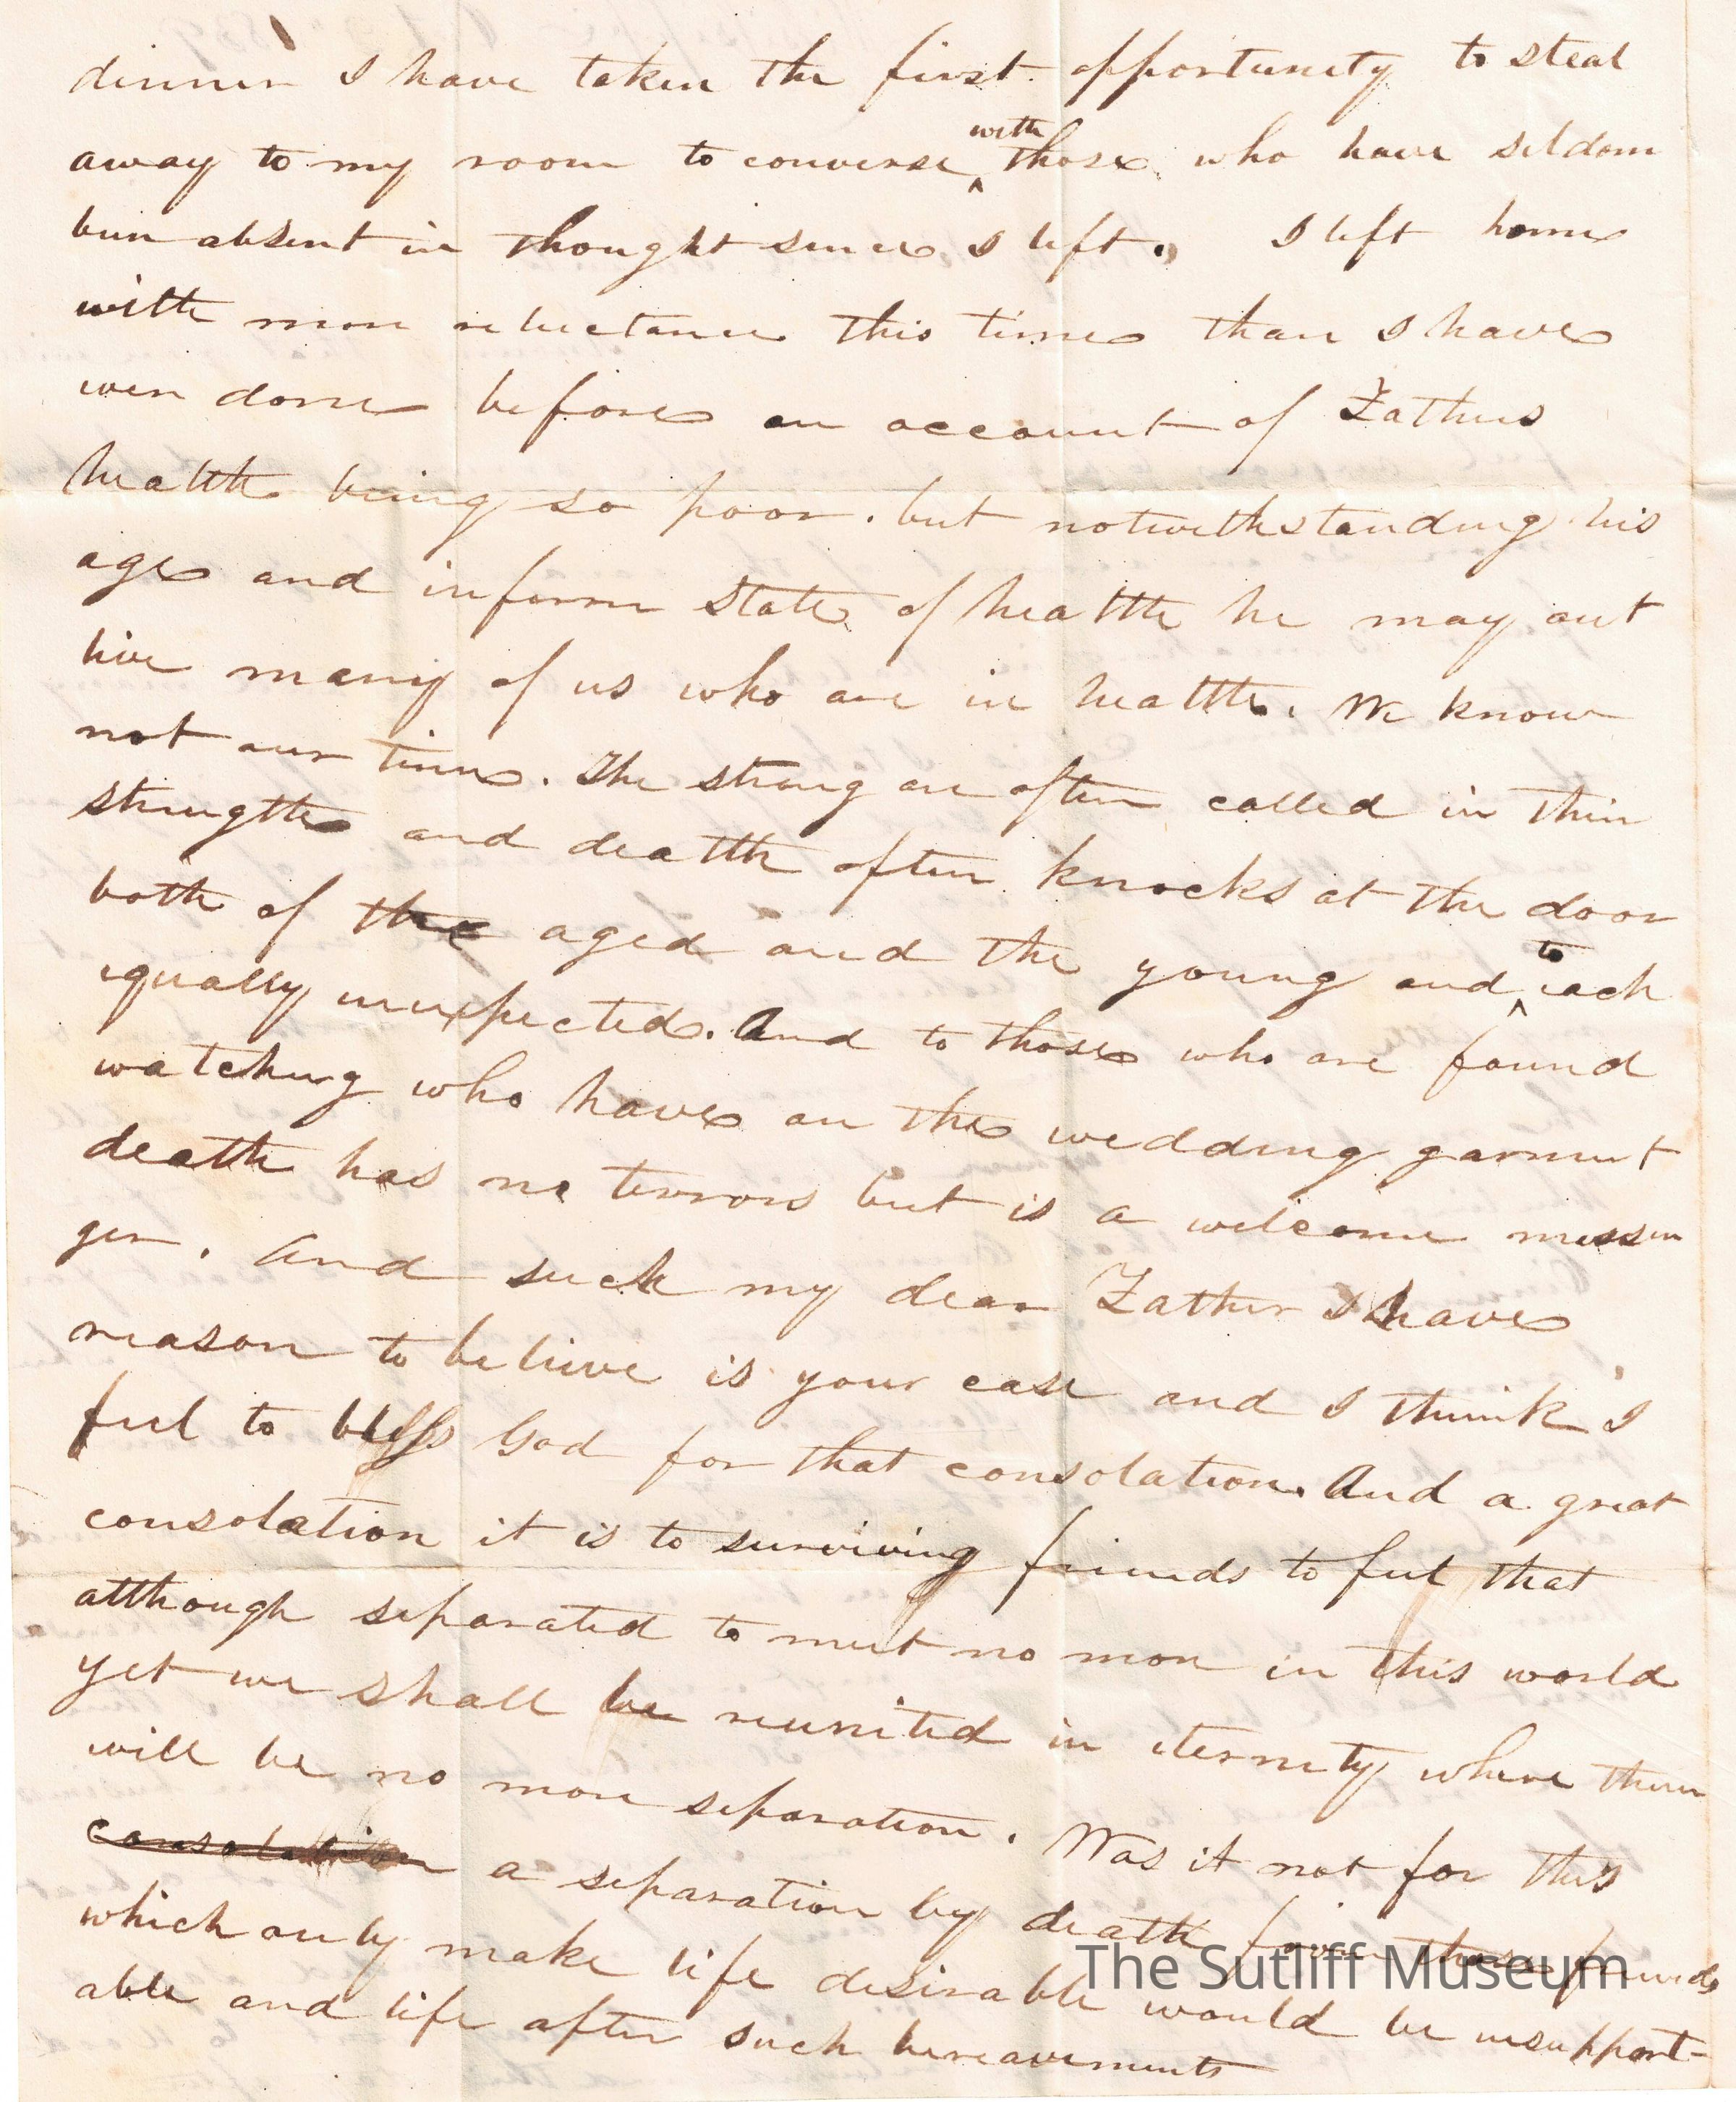 dinner I have taken the first opportunity to steal
away to my room to converse ^with those who have seldom
been absent in thought since I left. I left home
with more reluctance this time than I have
ever done before on account of Fathers
health being so poor. but notwithstanding his
age and inferm state of health he may out
live many of us who are in health. We know
not our time. The strong are often called in their
strength and death often knocks at the door
both of the aged and the young and ^to each
equally unexpected. And to those who are found
watching who have on the wedding garment
death has no terrors but is a welcome messen
ger. And such my dear Father I have
reason to believe is your case and I think I
feel to bless God for that consolation. And a great
consolation it is to surviving friends to feel that
although separated to meet no more in this world
yet we shall be reunited in eternity where there
will be no more separation. Was it not for this
consolation a separation by death from those friends
which only make life desirable would be insupport-
able and life after such bereavements
The Sutliff Museum